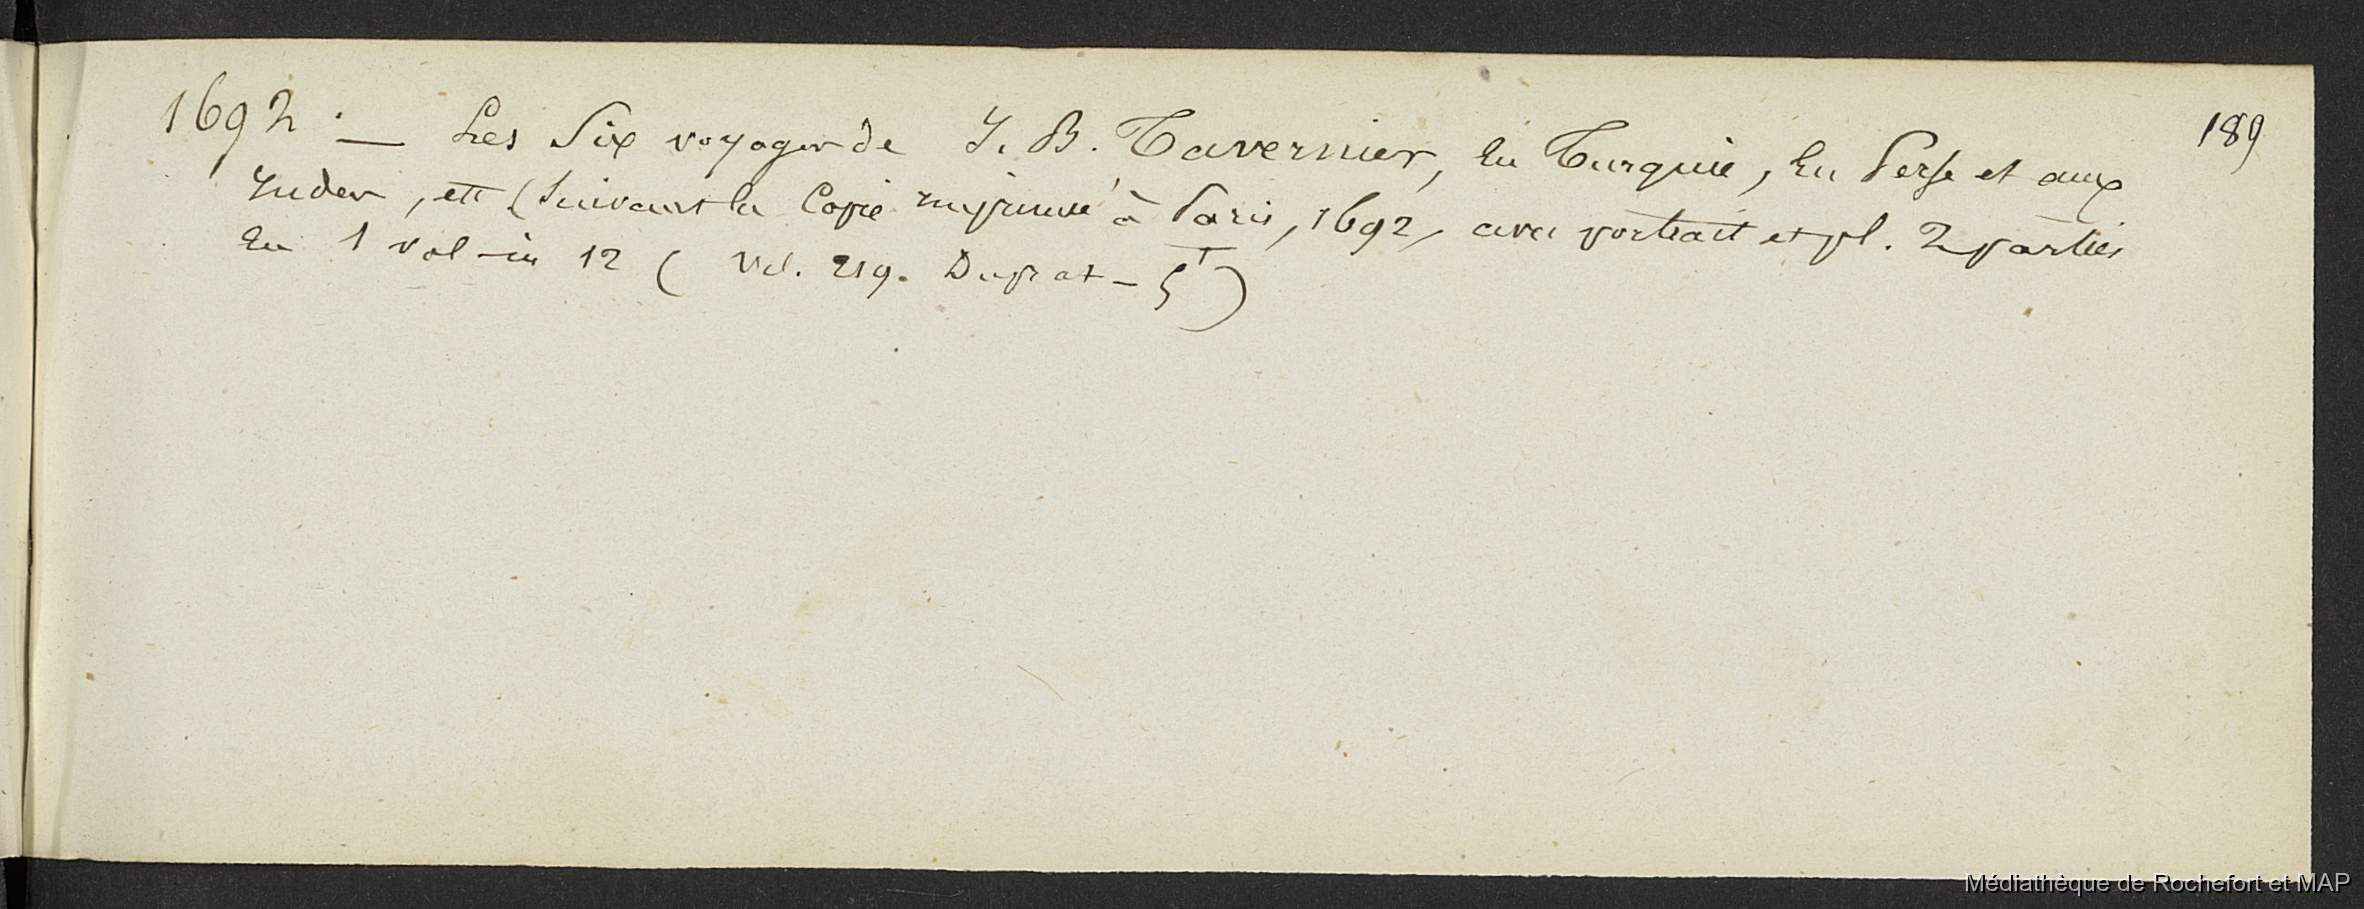 189
1692. — Les Six voyages de J. B. Tavernier, en Turquie, en Perse et aux
Indes, etc (suivant la Copie imprimée à Paris, 1692, avec portrait et pl. 2 parties
en 1 vol - in 12 ( Vel. 219. Duprat - 5)
Médiathèque de Rochefort et MAP